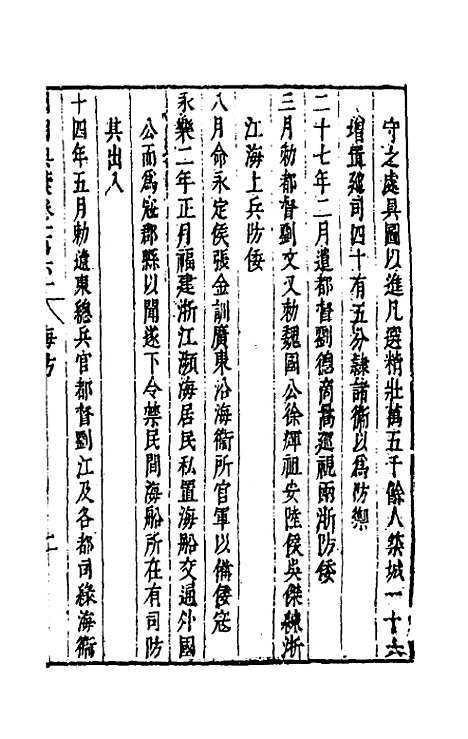 守之處具圖以進凡選精壯萬五千餘人築城一十六
增置巡司四十有五分隸諸衛以為防禦
二十七年二月遣都督劉德商暠巡視兩浙防倭
三月勅都督劉文又勅魏國公徐輝祖安陸侯吳傑練浙
江海上兵防倭
八月命永定侯張金訓廣東沿海衛所官軍以備倭寇
永樂二年正月福建浙江瀕海居民私置海船交通外國
公而為寇郡縣以聞遂下令禁民間海船所在有司防
其出入
十四年五月勅遼東總兵官都督劉江及各都司緣海衛
海防